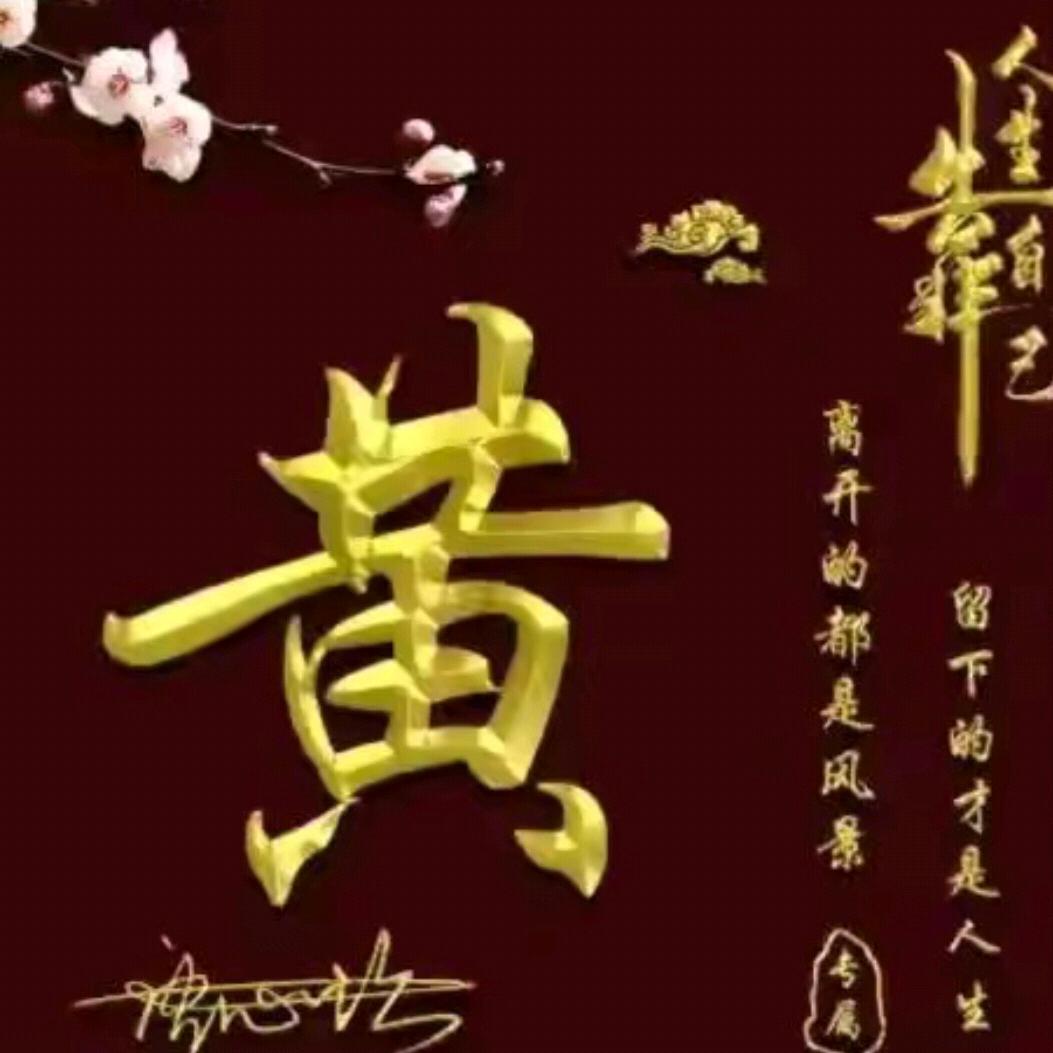 人生靠自己
留下的才是人生
离开的都是风景
专属
黄